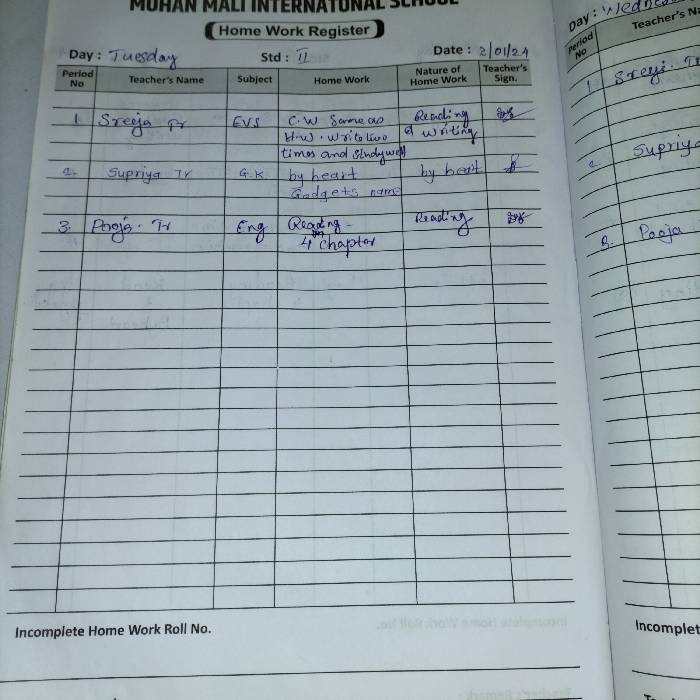 MOHAN MALI INTERNATONAL SCHOOL
Home Work Register
Day : Tuesday Std : II Date : 2/01/24
Period No Teacher's Name Subject Home Work Nature of Home Work Teacher's Sign.
1 Sreeja Tr EVS C.W Same as Reading
H.W. write two & writing
times and study well
2. Supriya Tr G.K by heart by heart
Gadgets name
3. Pooja. Tr Eng Reading - Reading
4th chapter
Incomplete Home Work Roll No.
Day : Wednes
Period No Teacher's Na
1. Sreeja. Tr
2. Supriya
3. Pooja
Incomplet